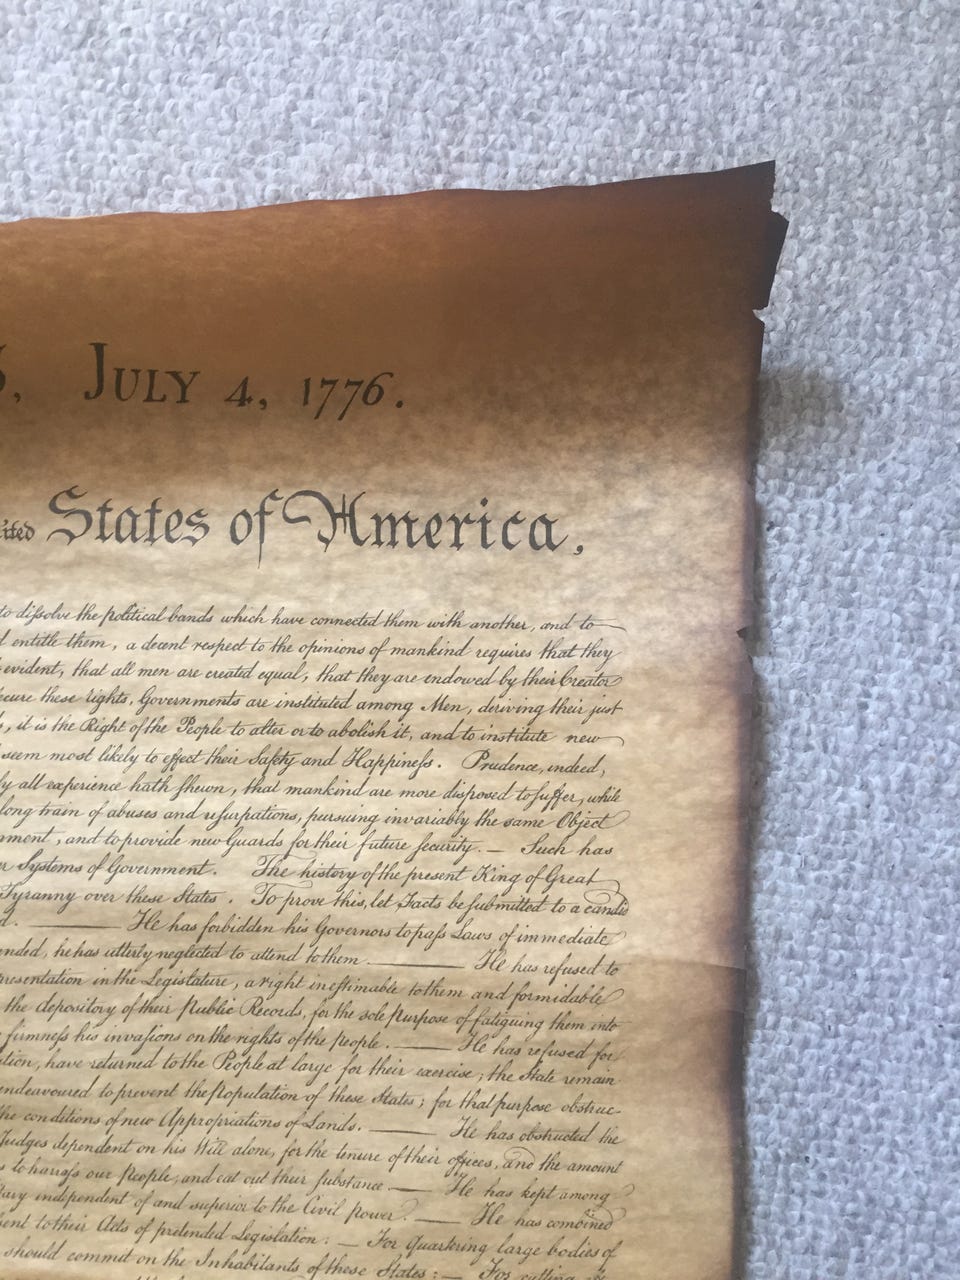 S, JULY 4, 1776.
ited States of America,
to dissolve the political bands which have connected them with another, and to
entitle them, a decent respect to the opinions of mankind requires that they
evident, that all men are created equal, that they are endowed by their Creator
ecure these rights, Governments are instituted among Men, deriving their just
, it is the Right of the People to alter or to abolish it, and to institute new
seem most likely to effect their Safety and Happiness. Prudence, indeed,
y all experience hath shewn, that mankind are more disposed to suffer, while
long train of abuses and usurpations, pursuing invariably the same Object
nment, and to provide new Guards for their future security. — Such has
r Systems of Government. The history of the present King of Great
Tyranny over these States. To prove this, let Facts be submitted to a candid
d. — He has forbidden his Governors to pass Laws of immediate
ended, he has utterly neglected to attend to them. — He has refused to
presentation in the Legislature, a right inestimable to them and formidable
the depository of their Public Records, for the sole purpose of fatiguing them into
firmness his invasions on the rights of the people. — He has refused for
tion, have returned to the People at large for their exercise; the State remain
endeavoured to prevent the population of these States; for that purpose obstruc-
the conditions of new Appropriations of Lands. — He has obstructed the
Judges dependent on his Will alone, for the tenure of their offices, and the amount
s to harrass our People, and eat out their substance. — He has kept among
tary independent of and superior to the Civil power. — He has combined
sent to their Acts of pretended Legislation: — For quartering large bodies of
should commit on the Inhabitants of these States: — For cutting